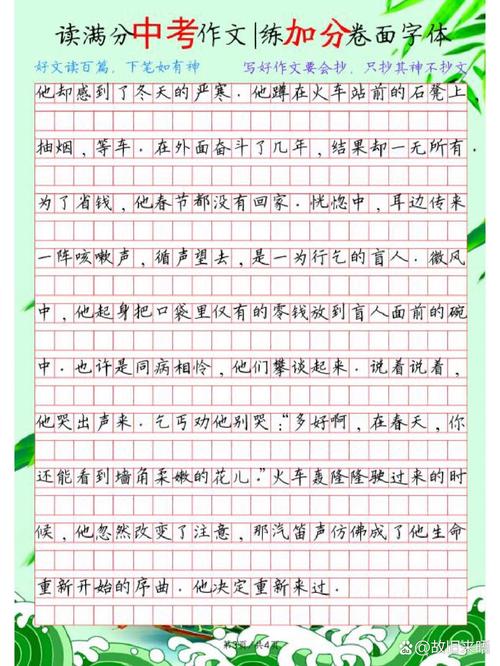 读满分中考作文|练加分卷面字体
好文读百篇，下笔如有神 写好作文要会抄，只抄其神不抄文
他却感到了冬天的严寒．他蹲在火车站前的石凳上
抽烟，等车．在外面奋斗了几年，结果却一无所有．
为了省钱，他春节都没有回家．恍惚中，耳边传来
一阵咳嗽声，循声望去，是一为行乞的盲人．微风
中，他起身把口袋里仅有的零钱放到盲人面前的碗
中．也许是同病相怜，他们攀谈起来．说着说着，
他哭出声来．乞丐劝他别哭：“多好啊，在春天，你
还能看到墙角柔嫩的花儿．”火车轰隆隆驶过来的时
候，他忽然改变了注意，那汽笛声仿佛成了他生命
重新开始的序曲．他决定重新来过．
第3页/共4页
故旧来曝